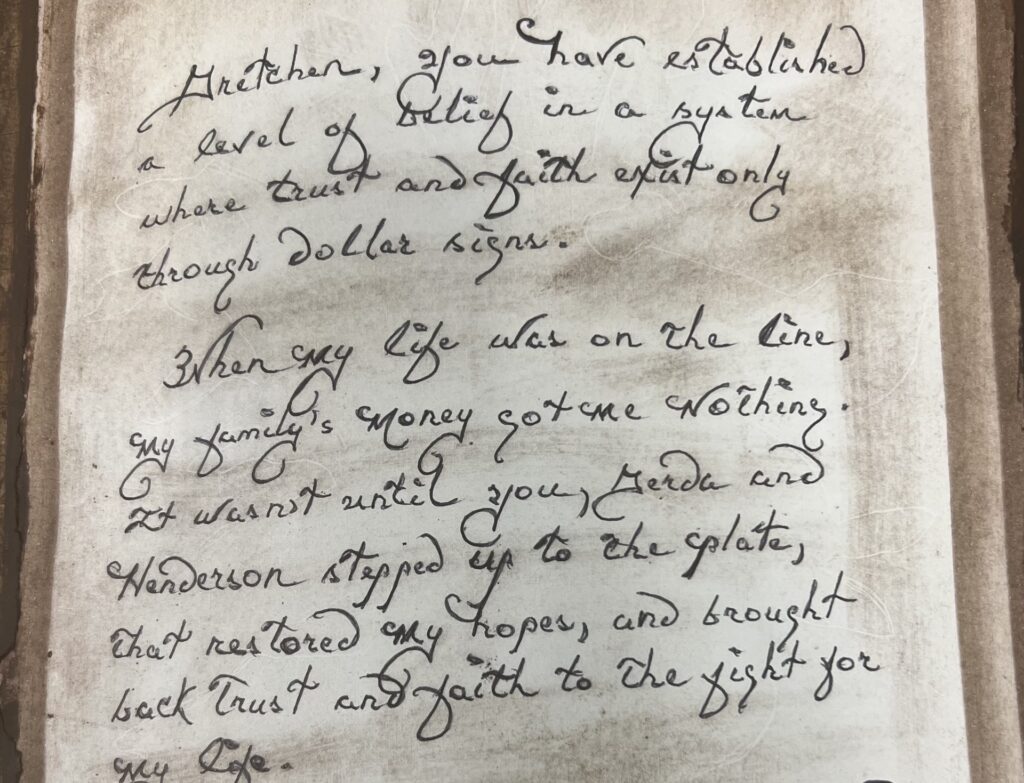 Gretchen, you have established
a level of belief in a system
where trust and faith exist only
through dollar signs.
When my life was on the line,
my family's money got me nothing.
It wasn't until you, Gerda and
Henderson stepped up to the plate,
that restored my hopes, and brought
back trust and faith to the fight for
my life.